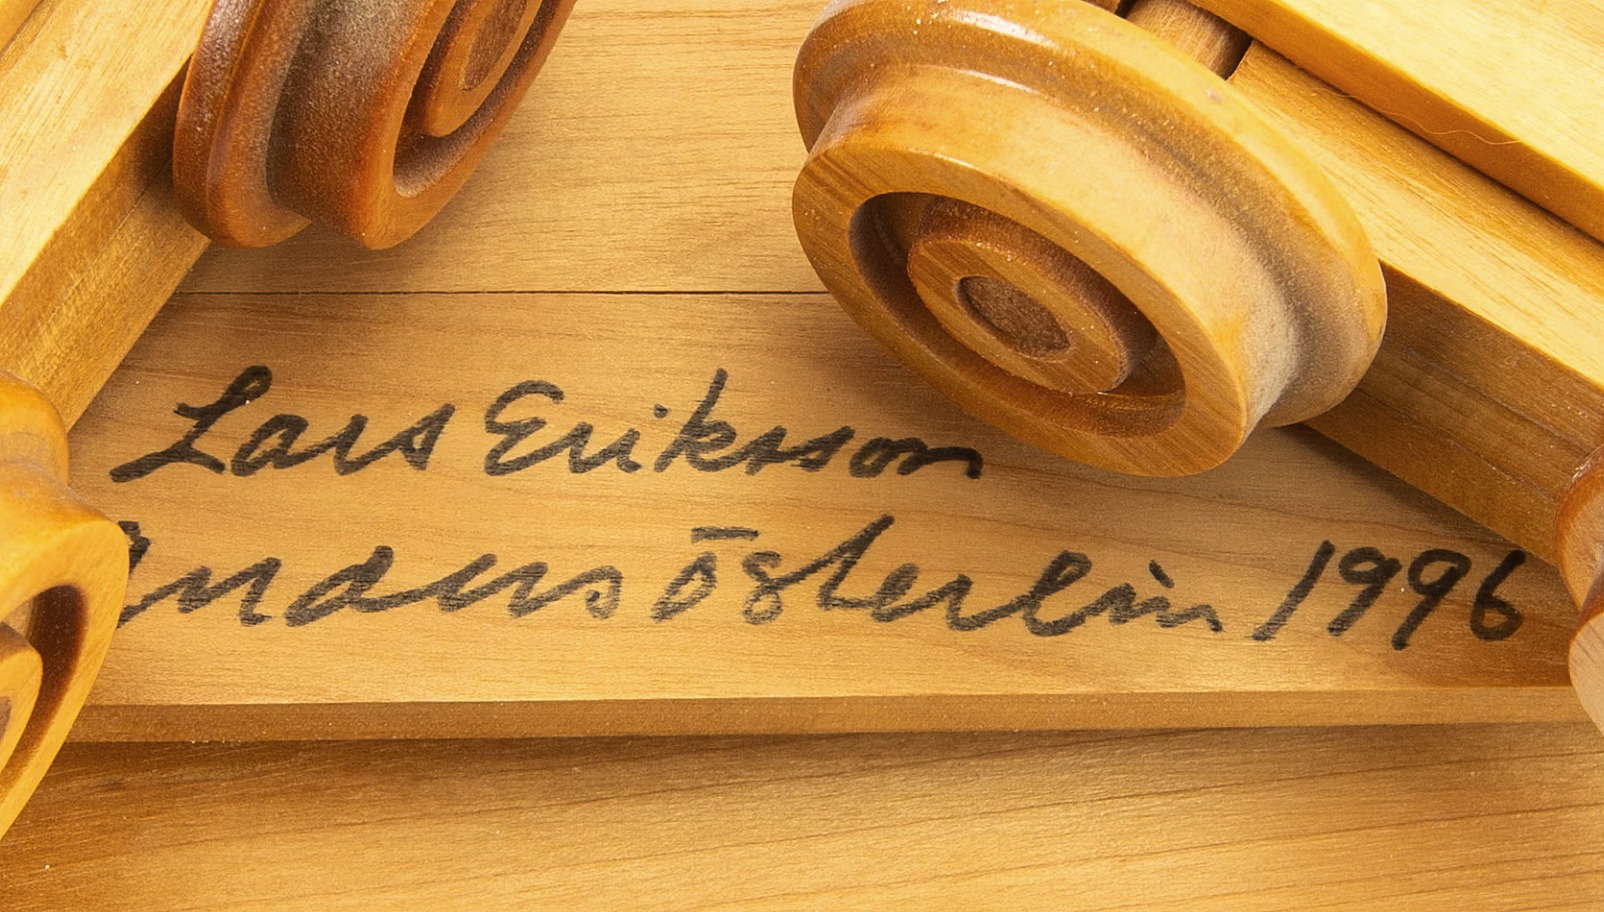 Lars Eriksson
Anders Österlin 1996